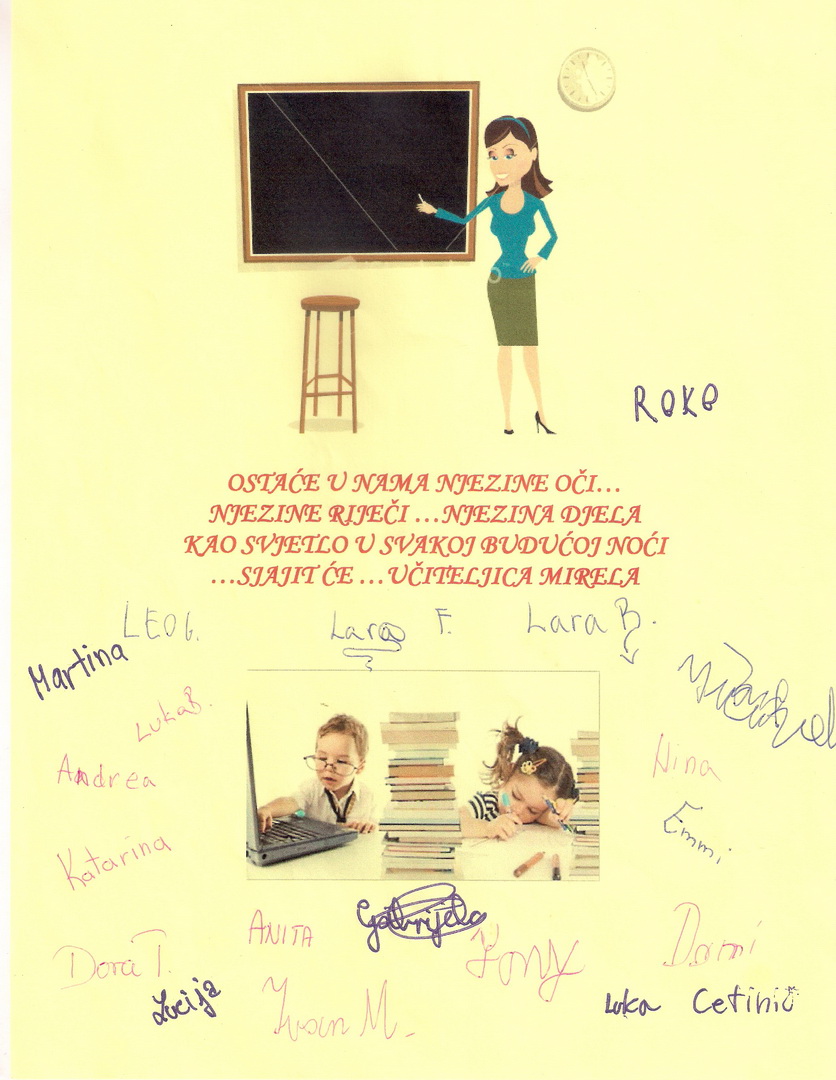 ROKO
OSTAĆE U NAMA NJEZINE OČI...
NJEZINE RIJEČI ...NJEZINA DJELA
KAO SVJETLO U SVAKOJ BUDUĆOJ NOĆI
...SJAJIT ĆE ...UČITELJICA MIRELA
LEO G.
Lara F.
Lara B.
Martina
LUKA B.
Andrea
Nina
Emmi
Katarina
ANITA
Gabrijela
Dora T.
Tony
Lucija
Ivan M.
Luka Cetinić